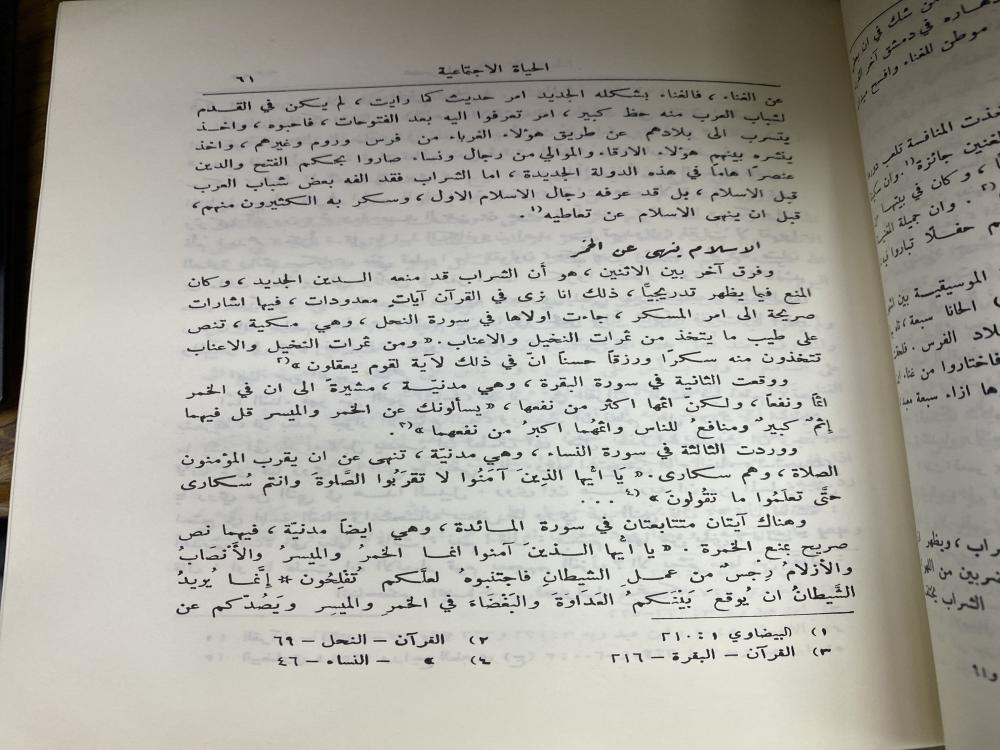 الحياة الاجتماعية
٦١
عن الغناء ، فالغناء بشكله الجديد امر حديث كما رايت ، لم يكن في القدم
لشباب العرب منه حظ كبير ، امر تعرفوا اليه بعد الفتوحات ، فاحبوه ، واخذ
يتسرب الى بلادهم عن طريق هؤلاء الغرباء من فرس وروم وغيرهم ، واخذ
ينشره بينهم هؤلاء الارقاء والموالي من رجال ونساء صاروا بحكم الفتح والدين
عنصرًا هامًا في هذه الدولة الجديدة ، اما الشراب فقد الفه بعض شباب العرب
قبل الاسلام ، بل قد عرفه رجال الاسلام الاول ، وسكر به الكثيرون منهم ،
قبل ان ينهى الاسلام عن تعاطيه١).
الاسلام ينهى عن الخمر
وفرق آخر بين الاثنين ، هو أن الشراب قد منعه الدين الجديد ، وكان
المنع فيما يظهر تدريجيًا ، ذلك انا نرى في القرآن آياتٍ معدودات ، فيها اشارات
صريحة الى امر المسكر ، جاءت اولاها في سورة النحل ، وهي مكية ، تنص
على طيب ما يتخذ من ثمرات النخيل والاعناب . « ومن ثمرات النخيل والاعناب
تتخذون منه سكرًا ورزقًا حسنًا انّ في ذلك لآية لقوم يعقلون »٢)
ووقعت الثانية في سورة البقرة ، وهي مدنيّة ، مشيرة الى ان في الخمر
اثمًا ونفعًا ، ولكنّ اثمها اكثر من نفعها ، « يسألونك عن الخمر والميسر قل فيهما
إثمٌ كبيرٌ ومنافعُ للناس واثمُهما اكبرُ من نفعهما »٣).
ووردت الثالثة في سورة النساء ، وهي مدنيّة ، تنهى عن ان يقرب المؤمنون
الصلاة ، وهم سكارى . « يَا أيُّها الذِينَ آمَنُوا لا تَقرَبُوا الصَّلوةَ وانتم سُكارى
حتَّى تعلَمُوا ما تقُولونَ »٤) ...
وهناك آيتان متتابعتان في سورة المائدة ، وهي ايضًا مدنيّة ، فيهما نص
صريح بمنع الخمرة . « يا أيُّها الذينَ آمنوا انما الخمرُ والميسرُ والأنصَابُ
والأزلامُ رِجْسٌ من عملِ الشيطانِ فاجتنبوهُ لعلَّكم تُفلِحُون * إنَّما يُريدُ
الشَّيطانُ ان يُوقعَ بَيْنَكمُ العدَاوَةَ والبَغْضَاءَ في الخمرِ والميسِر ويَصُدّكم عن
١) البيضاوي ١ : ٢١٠
٢) القرآن – النحل – ٦٩
٣) القرآن – البقرة – ٢١٦
٤) » – النساء – ٤٦